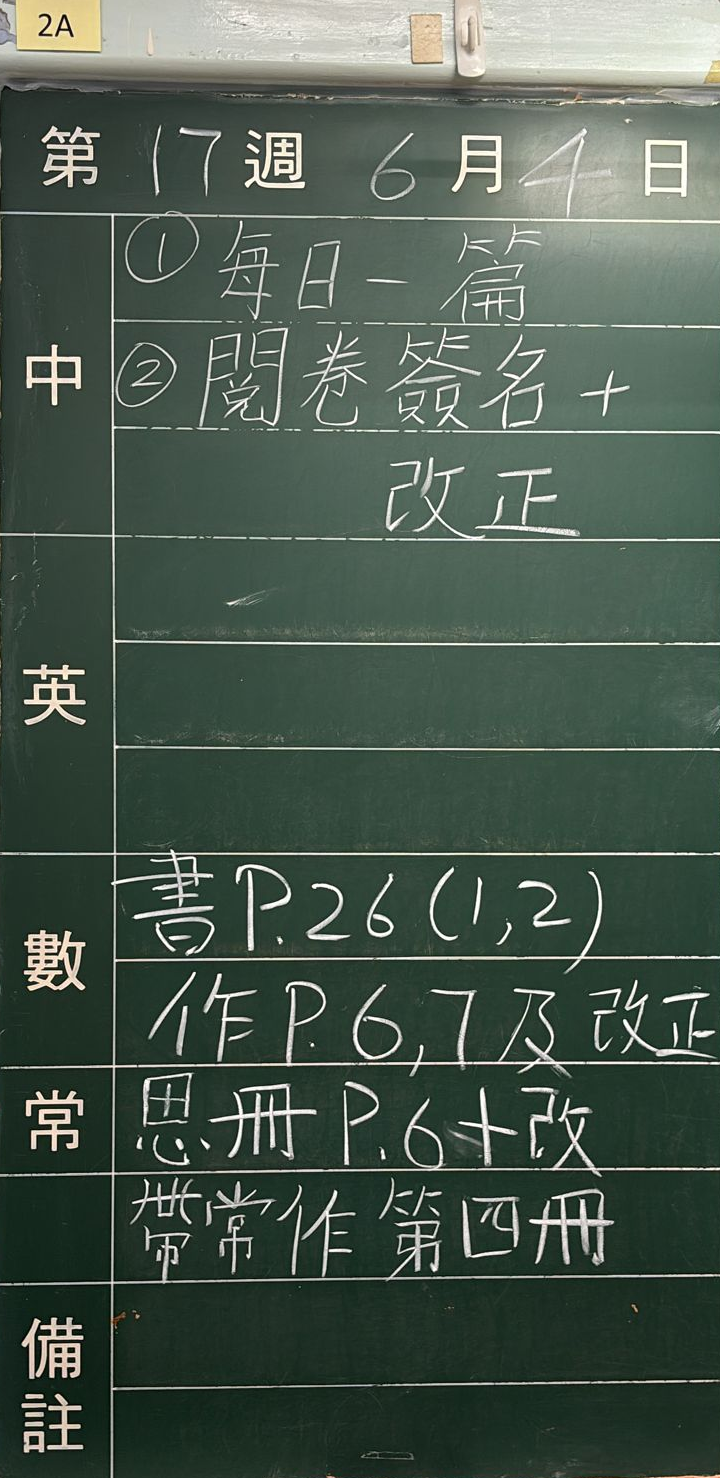 2A
第 17 週 6 月 4 日
中
① 每日一篇
② 閱卷簽名+
改正
英
數
書P.26(1,2)
作P.6,7及改正
常
思冊P.6+改
帶常作第四冊
備註